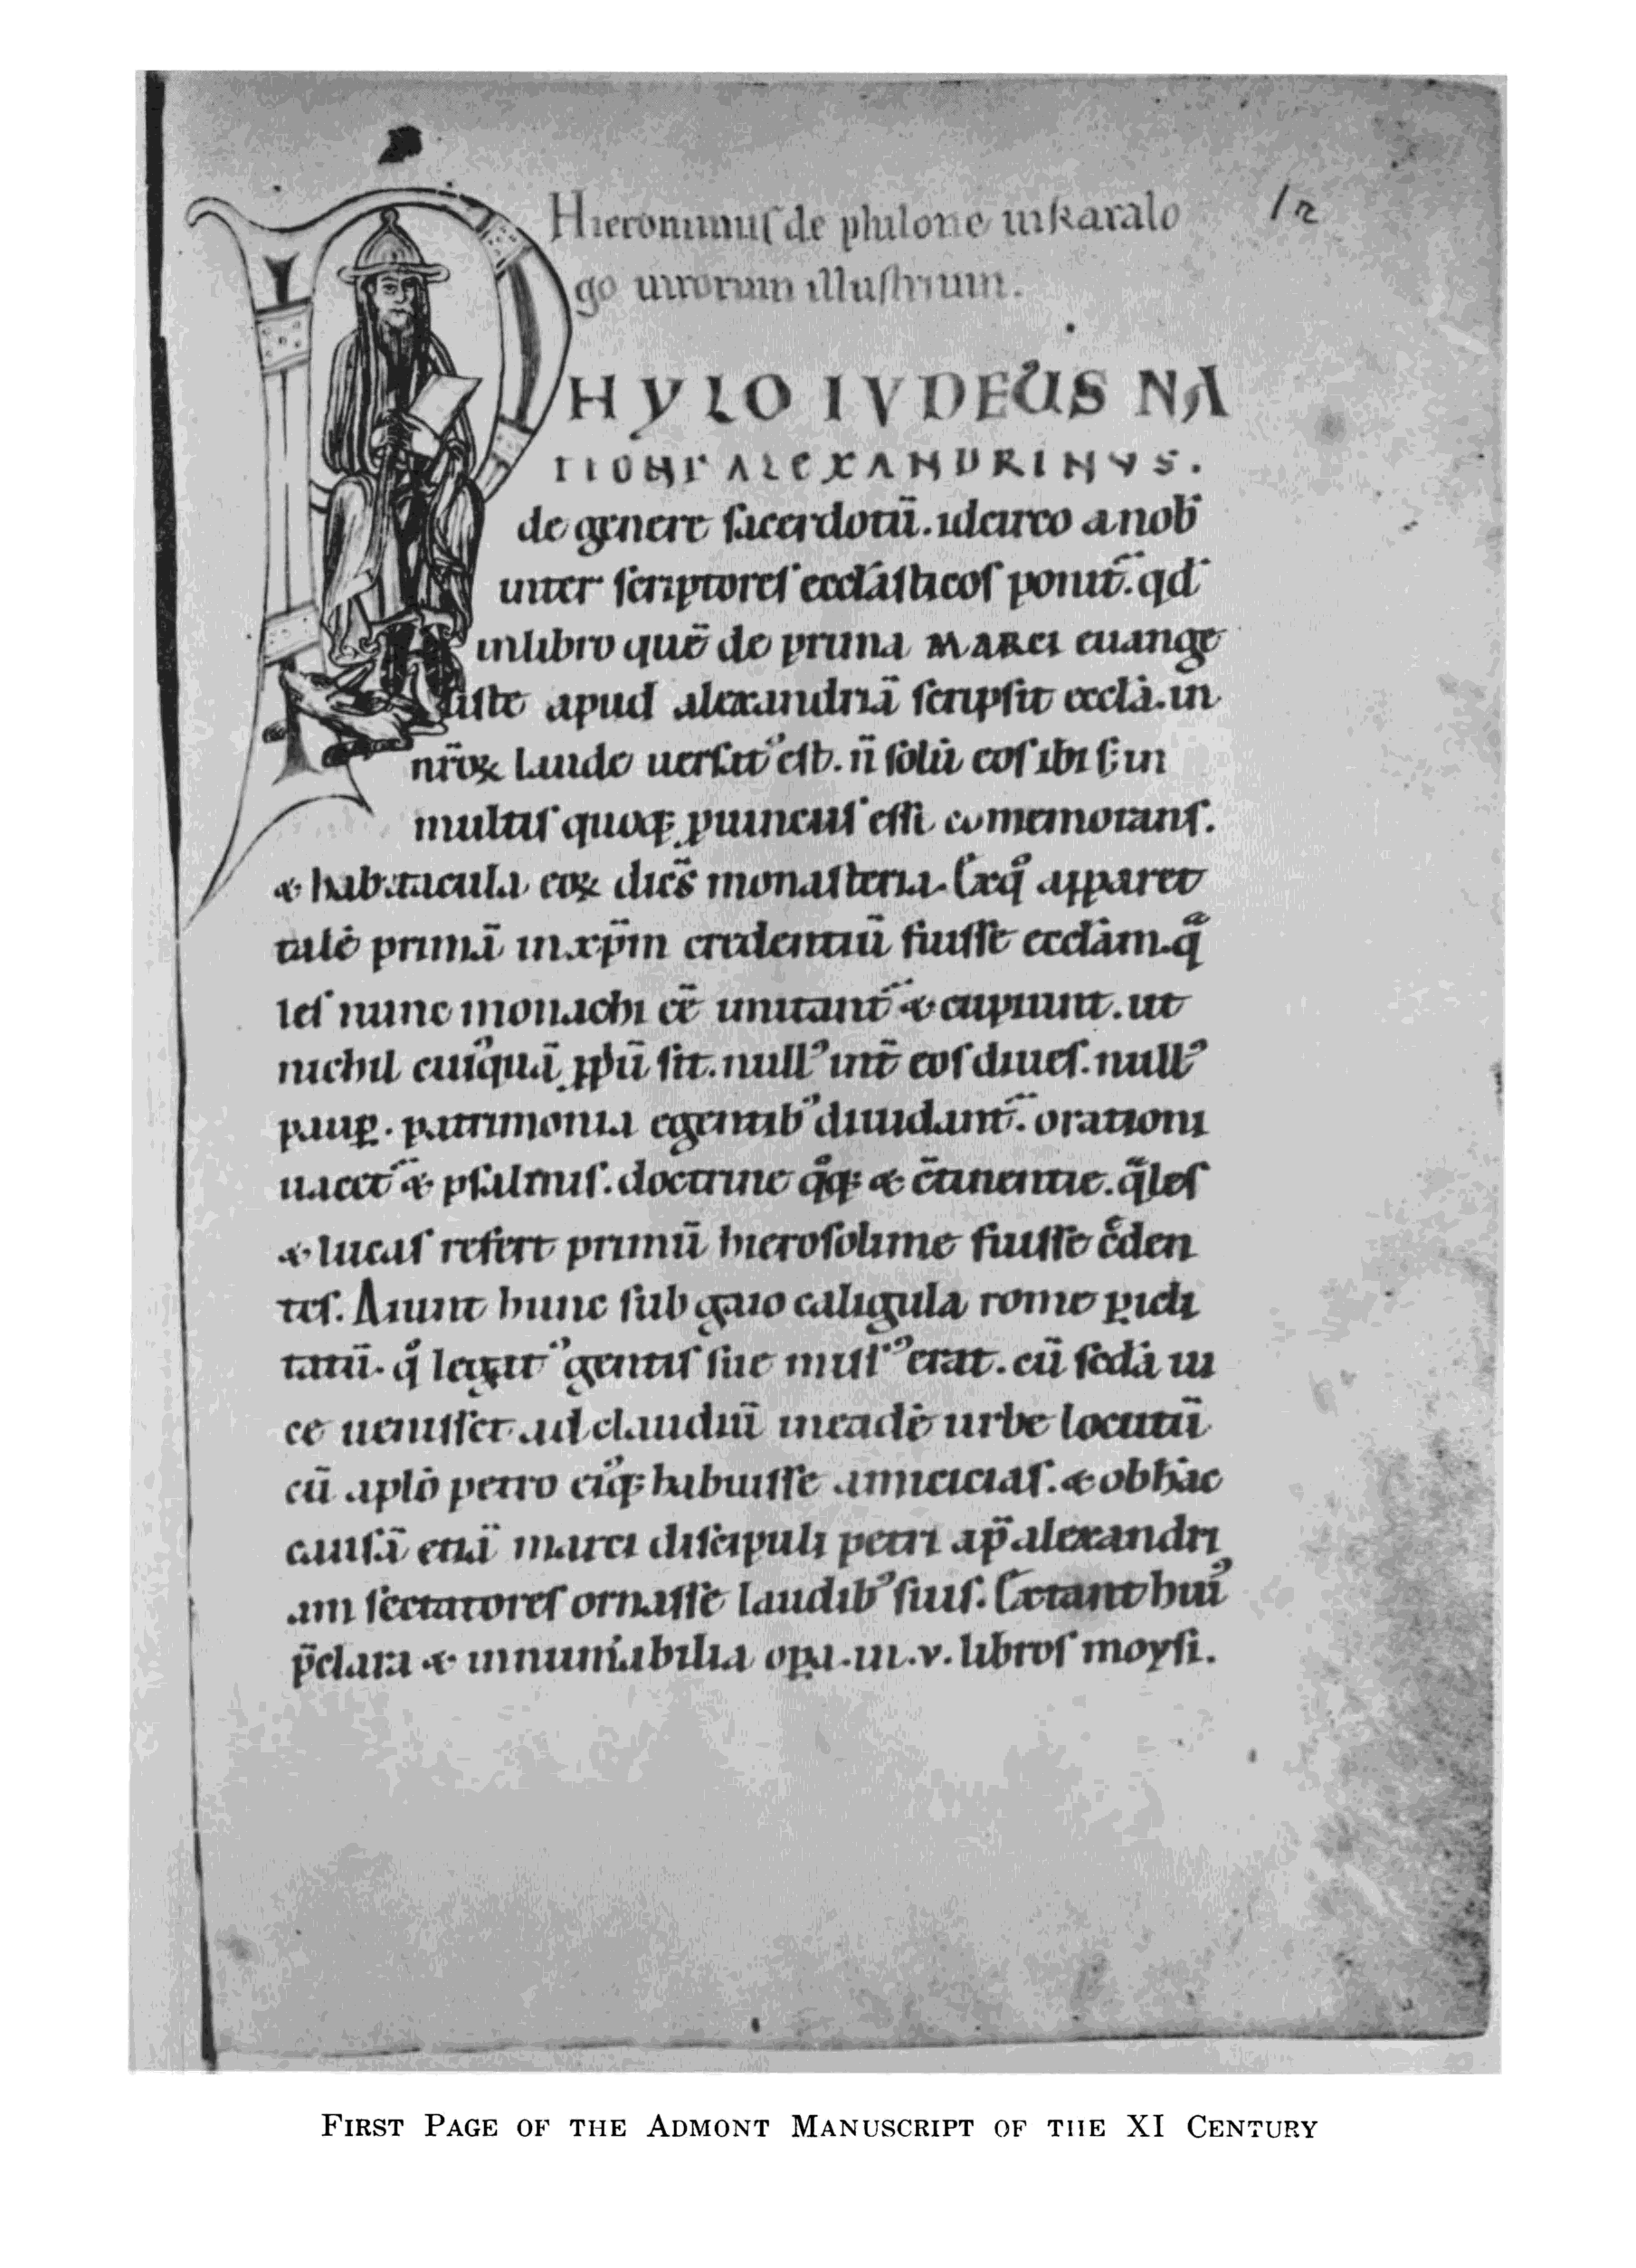 Hieronimus de philone in katalo
1r
go uirorum illustrium.
PHYLO IVDEUS NA
TIONE ALEXANDRINVS.
de genere sacerdotū. idcirco a nob
inter scriptores ecclāsticos ponit᷑. qd
in libro quē de prima MARCI euange
liste apud alexandriā scripsit ecclā. in
nr̄oꝝ laude uersatꝰ est. n̄ solū eos ibi s; in
multis quoq; ꝓuinciis eē commemorans.
& habitacula eoꝝ dicēs monasteria. Ex qͦ apparet
talē primā in xp̄m credentiū fuisse ecclām. qᵃ
les nunc monachi eē imitant᷑ & cupiunt. ut
nichil cuiquā ꝓpū sit. nullꝰ int̄ eos diues. nullꝰ
paup̱. patrimonia egentibꝰ diuidunt᷑. orationi
uacat᷑ & psalmis. doctrine qͦq; & c̄tinentie. qᵃles
& lucas refert primū hierosolime fuisse c̄den
tes. Aiunt hunc sub gaio caligula rome ꝑicli
tatū. qͦ legatꝰ gentis sue missꝰ erat. cū scdā ui
ce uenisset ad claudiū in eadē urbe locutū
cū aplō petro eiꝰq; habuisse amicicias. & ob hāc
causā etiā marci discipuli petri ap̄ alexandri
am sectatores ornasse laudibꝰ suis. Extant huiꝰ
p̄clara & innum̄abilia oꝑa. in .v. libros moysi.
FIRST PAGE OF THE ADMONT MANUSCRIPT OF THE XI CENTURY